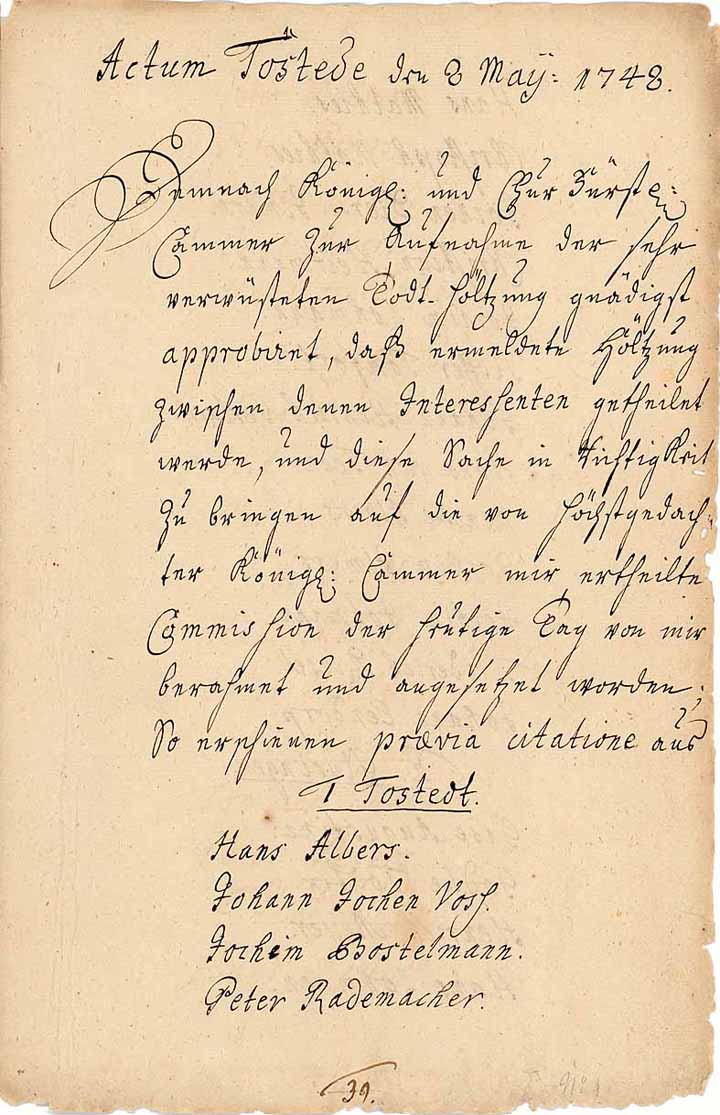 Actum Tostede den 8 May: 1748.
Demnach Königl: und Chur Fürstl:
Cammer zur Aufnahme der sehr
verwüsteten Todt-Höltzung gnädigst
approbiret, daß ermeldete Höltzung
zwischen denen Interessenten getheilet
werde, und diese Sache in Richtigkeit
zu bringen auf die von Höchstgedach-
ter Königl: Cammer mir ertheilte
Commission der heutige Tag von mir
berahmet und angesetzet worden;
So erschienen prævia citatione aus
1 Tostedt.
Hans Albers.
Johann Jochen Voss.
Jochim Bostelmann.
Peter Rademacher.
39.